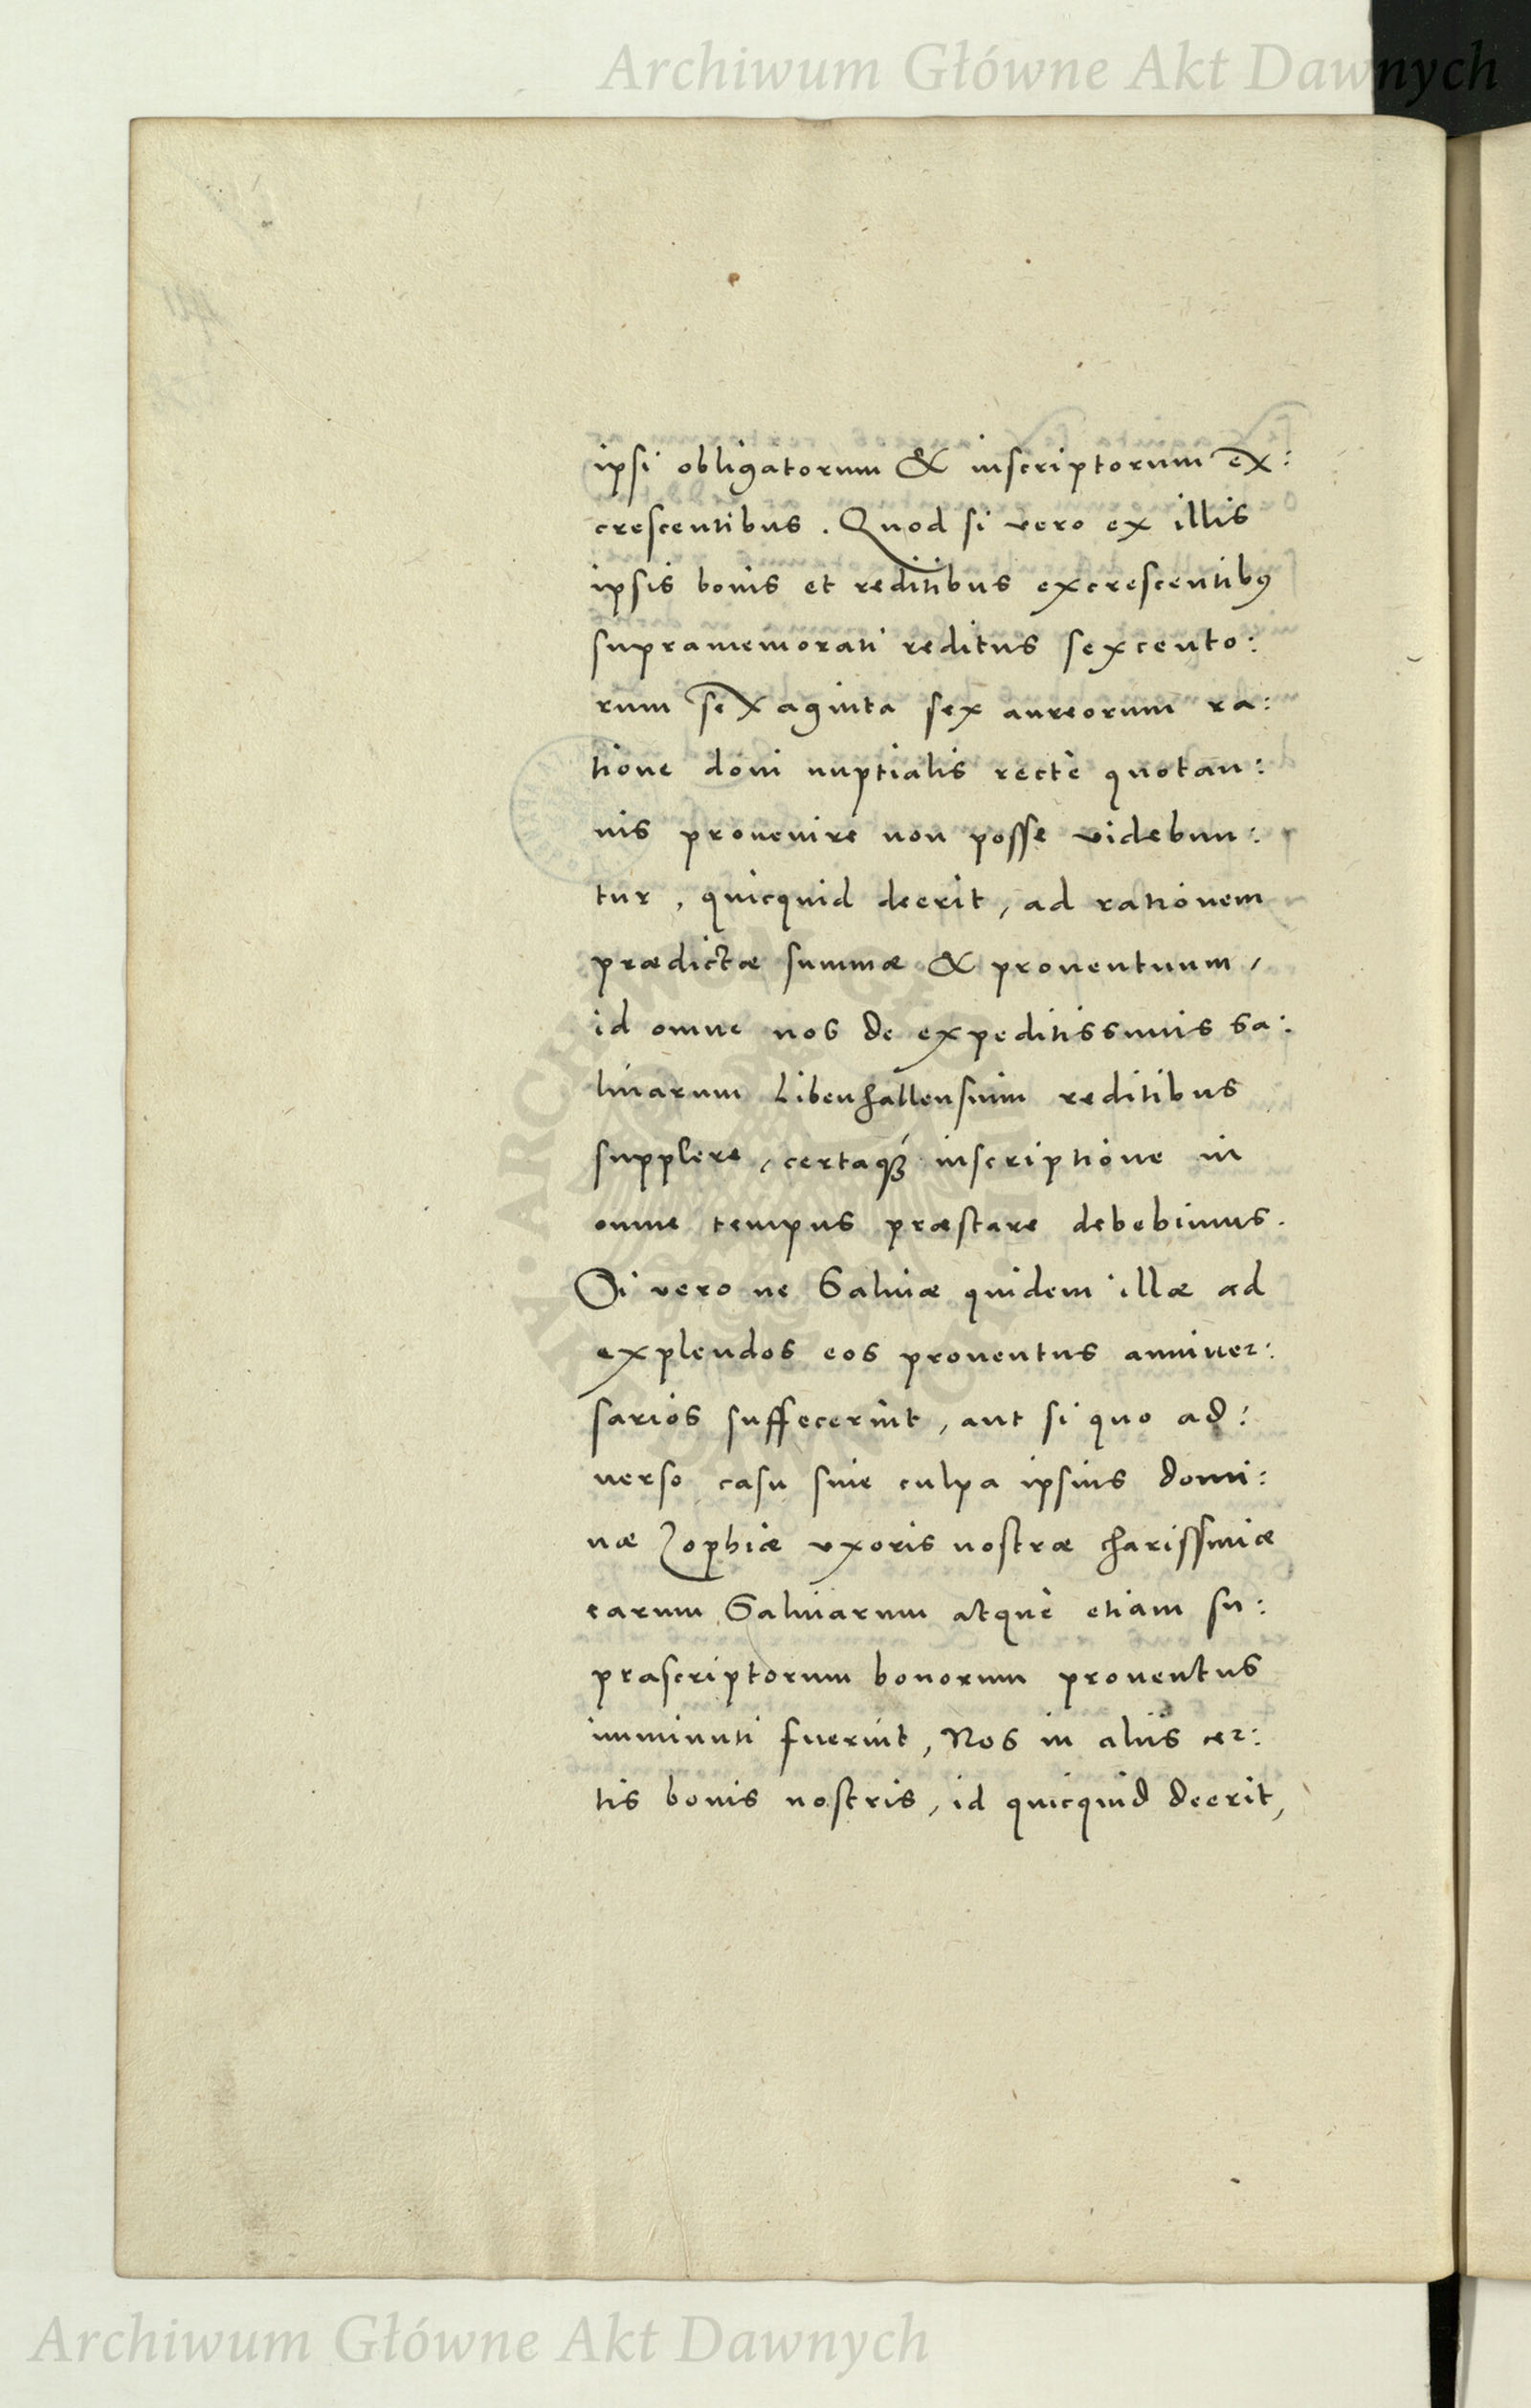 Archiwum Główne Akt Dawnych
ipsi obligatorum & inscriptorum ex:
crescentibus. Quod si vero ex illis
ipsis bonis et reditibus excrescentibꝰ
supramemorati reditus sexcento:
rum sexaginta sex aureorum ra:
tione doni nuptialis rectè quotan:
nis prouenire non posse videbun:
tur, quicquid deerit, ad rationem
prædictæ summæ & prouentuum,
id omne nos de expeditissimis Sa:
linarum Libenhallensium reditibus
supplere, certaqꝫ inscriptione in
omne tempus præstare debebimus.
Si vero ne Salinæ quidem illæ ad
explendos eos prouentus anniuer:
sarios suffecerint, aut si quo ad:
uerso casu sine culpa ipsius domi:
næ Zophiæ vxoris nostræ charissimæ
earum Salinarum atquè etiam su:
prascriptorum bonorum prouentus
imminuti fuerint, Nos in alijs cer:
tis bonis nostris, id quicquid deerit,
Archiwum Główne Akt Dawnych